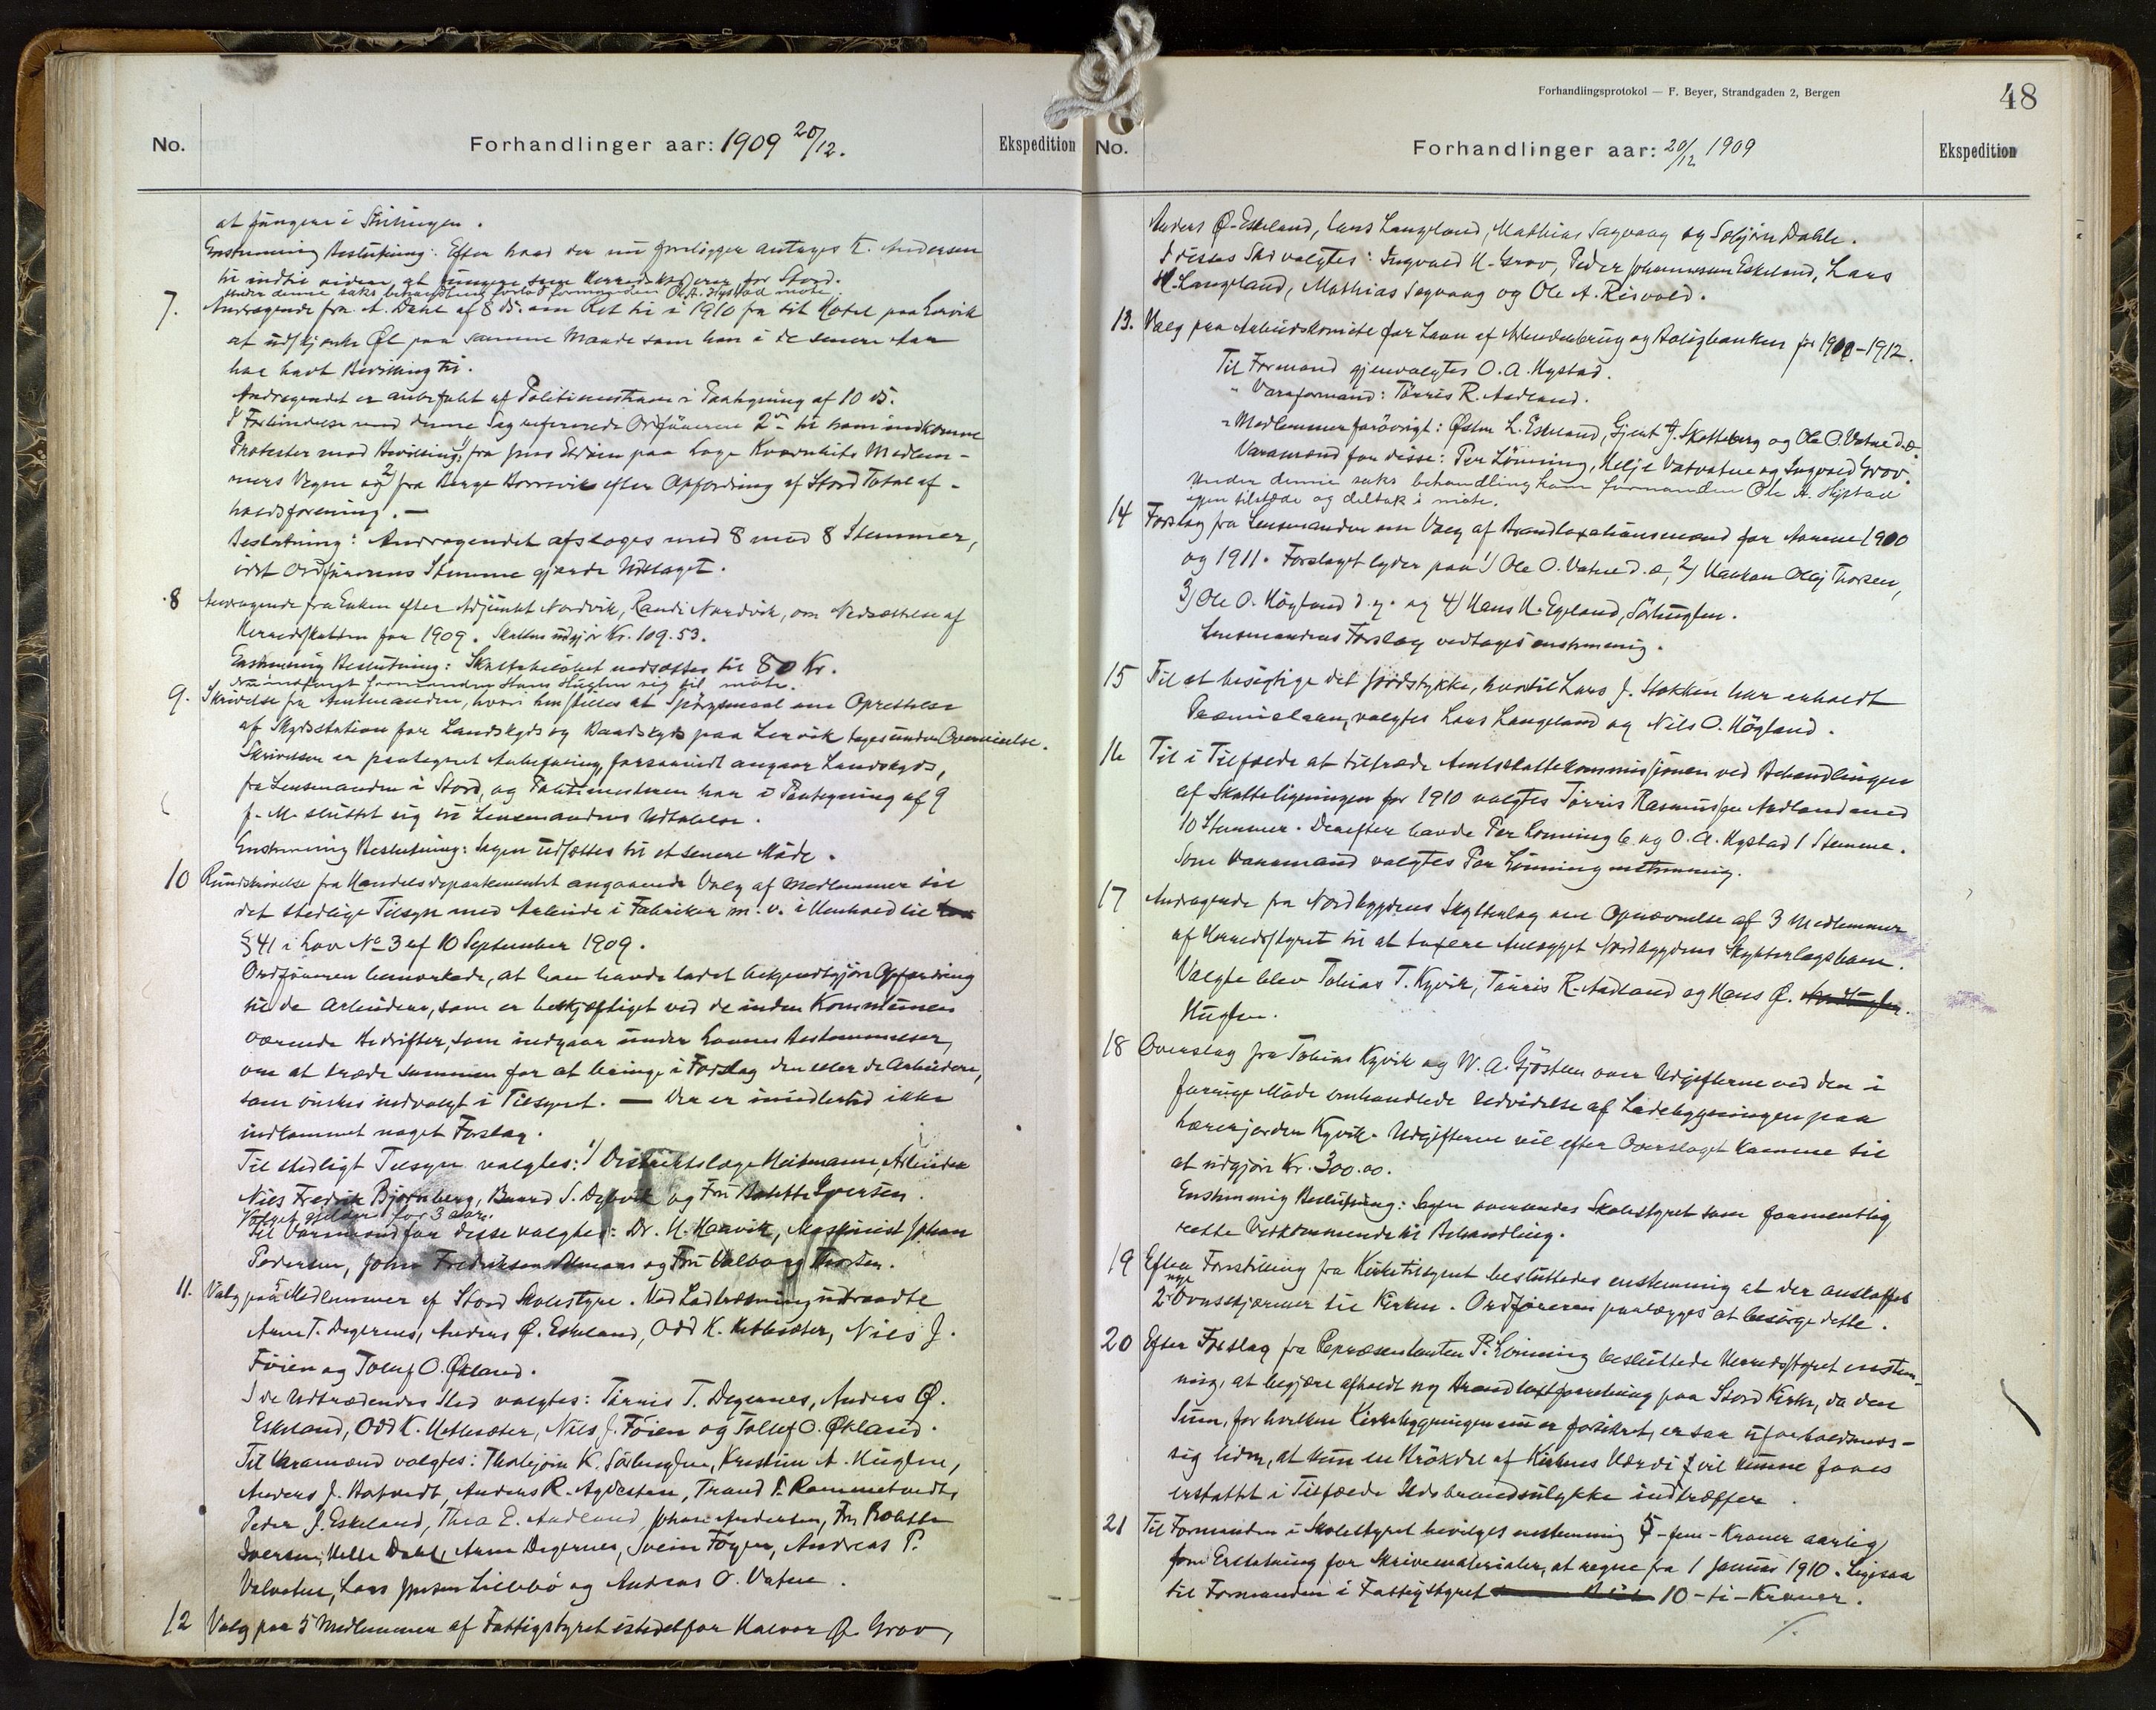 No. Forhandlinger aar: 1909 20/12. Ekspedition
at fungere i Stillingen.
Enstemmig Beslutning: Efter hvad der nu foreligger antages K. Andersen
til indtil videre at fungere som Herredskasserer for Stord.
Under denne saks behandling forlod formanden O. A. Hystad møte.
7. Andragende fra A. Dahl af 8 ds. om Ret til i 1910 fra sit Hotel paa Lervik
at udskjenke Øl paa samme Maade som han i de senere Aar
har havt Bevilling til.
Andragendet er anbefalet af Politimesteren i Paategning af 10 ds.
I Forbindelse med denne Sag refererede Ordføreren 2de til ham indkomne
Protester mod Bevilling: 1) fra Jens Strøm paa Loge Kværnbits Medlem-
mers Vegne og 2) fra Børge Horrevik efter Opfordring af Stord Total af-
holdsforening. —
Beslutning: Andragendet afsloges med 8 mod 8 Stemmer,
idet Ordførerens Stemme gjorde Udslaget.
8 Andragende fra Enken efter Adjunkt Nordvik, Randi Nordvik, om Nedsættelse af
Herredsskatten for 1909. Skatten udgjør Kr. 109.53.
Enstemmig Beslutning: Skattebeløbet nedsættes til 80 Kr.
formanden Hans Huglen sig til møte.
9. Skrivelse fra Amtmanden, hvori henstilles at Spørgsmaal om Oprettelse
af Skydsstation for Landskyds og Baadskyds paa Lervik tages under Overveielse.
Skrivelsen er paategnet Anbefaling, forsaavidt angaar Landskyds,
fra Lensmanden i Stord, og Politimesteren har i Paategning af 9
f. M. sluttet sig til Lensmandens Udtalelse.
Enstemmig Beslutning: Sagen udsættes til et senere Møde.
10 Rundskrivelse fra Handelsdepartementet angaaende Valg af Medlemmer til
det stedlige Tilsyn med Arbeide i Fabriker m. v. i Henhold til
§ 41 i Lov No 3 af 10 September 1909.
Ordføreren bemærkede, at han havde ladet bekjendtgjøre Opfordring
til de Arbeidere, som er beskjæftiget ved de inden Kommunen
værende Bedrifter, som indgaar under Lovens Bestemmelser,
om at træde sammen for at bringe i Forslag den eller de Arbeidere,
som ønskes indvalgt i Tilsynet. — Der er imidlertid ikke
indkommet noget Forslag.
Til stedligt Tilsyn valgtes: 1) Distriktslæge Heitmann, Arbeider
Nils Fredrik Bjørnberg, Baard S. Dybvik og Fru Bolette Iversen.
Valget gjelder for 3 aar.
Til Varamænd for disse valgtes: Dr. H. Hanvik, Maskinist Johan
Pedersen, John Fredriksen Almaas og Fru Valborg Thorsen.
11. Valg paa 5 Medlemmer af Stord Skolestyre. Ved Lodtrækning udtraadte
Arne T. Digernes, Anders Ø. Eskeland, Odd K. Hetlesæter, Nils J.
Føien og Tollef O. Økland.
I de Udtrædendes Sted valgtes: Tørris T. Digernes, Anders Ø.
Eskeland, Odd K. Hetlesæter, Nils J. Føien og Tollef O. Økland.
Til Varamænd valgtes: Thorbjørn K. Sørhuglen, Kristian A. Huglen,
Anders J. Hatvedt, Anders R. Agdesten, Trond P. Rommetvedt,
Peder J. Eskeland, Thea E. Aadland, Johan Andersen, Fru Bolette
Iversen, Helle Dahl, Arne Digernes, Svein Føyen, Andreas P.
Valvatne, Lars Jensen Lillebø og Andreas O. Vatne.
12 Valg paa 5 Medlemmer af Fattigstyret istedetfor Halvor Ø. Grov,
Forhandlingsprotokol — F. Beyer, Strandgaden 2, Bergen
48
No. Forhandlinger aar: 20/12 1909 Ekspedition
Anders Ø. Eskeland, Lars Langeland, Mathias Sagvaag og Solgjøm Dahle.
I disses Sted valgtes: Ingvald H. Grov, Peder Johannessen Eskeland, Lars
H. Langeland, Mathias Sagvaag og Ole A. Risvold.
13. Valg paa Arbeidskomite for Laan af Arbeiderbrug og Boligbanken for 1909-1912.
Til Formand gjenvalgtes O. A. Hystad.
" Varaformand: Tørris R. Aadland.
" Medlemmer forøvrigt: Østen L. Eskeland, Gjert J. Skatteberg og Ole O. Vatne d.æ.
Varamænd for disse: Per Lønning, Helje Vatvatne og Ingvald Grov.
Under denne saks behandling kom formanden Ole A. Hystad
igjen tilstede og deltok i møte.
14 Forslag fra Lensmanden om Valg af Brandtaxationsmænd for Aarene 1910
og 1911. Forslaget lyder paa 1) Ole O. Vatne d.æ., 2) Haakon Olaj Thorsen,
3) Ole O. Høyland d.y. og 4) Hans H. Epland, Sørhuglen.
Lensmandens Forslag vedtages enstemmig.
15 Til at besigtige det Jordstykke, hvortil Lars J. Stokken har erholdt
Præmielaan, valgtes Lars Langeland og Nils O. Høgland.
16 Til i Tilfælde at tiltræde Amtsskattekommissionen ved Behandlingen
af Skatteligningen for 1910 valgtes Tørris Rasmussen Aadland med
10 Stemmer. Derefter havde Per Lønning 6 og O. A. Hystad 1 Stemme.
Som Varamand valgtes Per Lønning enstemmig.
17 Andragende fra Nordbygdens Skytterlag om Opnævnelse af 3 Medlemmer
af Herredsstyret til at taxere Anlægget Nordbygdens Skytterlagsbane.
Valgte blev Tobias T. Kyvik, Tørris R. Aadland og Hans Ø.
Huglen.
18 Overslag fra Tobias Kyvik og W. A. Gjøsteen over Udgifterne ved den i
forrige Møde omhandlede Udvidelse af Ladebygningen paa
Lærerjorden Kyvik. Udgifterne vil efter Overslaget komme til
at udgjøre Kr. 300.00.
Enstemmig Beslutning: Sagen oversendes Skolestyret som formentlig
rette Vedkommende til Behandling.
19 Efter Forestilling fra Kirketilsynet besluttedes enstemmig at der anskaffes
2 nye Ovnsskjærmer til Kirken. Ordføreren paalægges at besørge dette.
20 Efter Forslag fra Repræsentanten P. Lønning besluttede Herredsstyret enstem-
mig, at begjære afholdt ny Brandtaxtforretning paa Stord Kirke, da den
Sum, for hvilken Kirkebygningen nu er forsikret, er saa uforholdsmæs-
sig liden, at kun en Brøkdel af Kirkens Værdi vil kunne faaes
erstattet i Tilfælde Ildsbrandsulykke indtræffer.
21 Til Formanden i Skolestyret bevilges enstemmig 5 -fem- Kroner aarlig
som Erstatning for Skrivematerialer, at regne fra 1 Januar 1910. Ligesaa
til Formanden i Fattigstyret 10 -ti- Kroner.